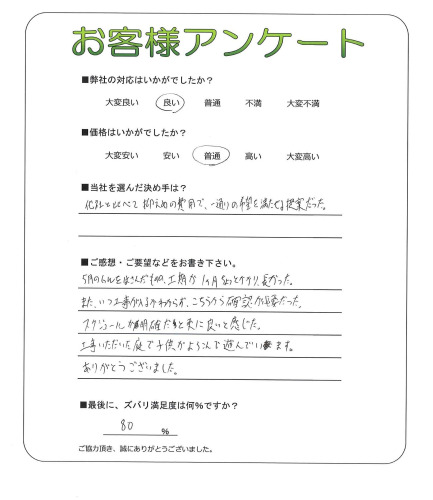 お客様アンケート
■弊社の対応はいかがでしたか？
大変良い 良い 普通 不満 大変不満
■価格はいかがでしたか？
大変安い 安い 普通 高い 大変高い
■当社を選んだ決め手は？
他社と比べて抑えめの費用で、一通りの希望を満たせる提案だった。
■ご感想・ご要望などをお書き下さい。
5月のGWをはさんだものの、工期が1ヵ月ちょっとかかり、長かった。
また、いつ工事が入るかわからず、こちらから確認が必要だった。
スケジュールが明確だと更に良いと感じた。
工事いただいた庭で子供がよろこんで遊んでいます。
ありがとうございました。
■最後に、ズバリ満足度は何％ですか？
80 ％
ご協力頂き、誠にありがとうございました。